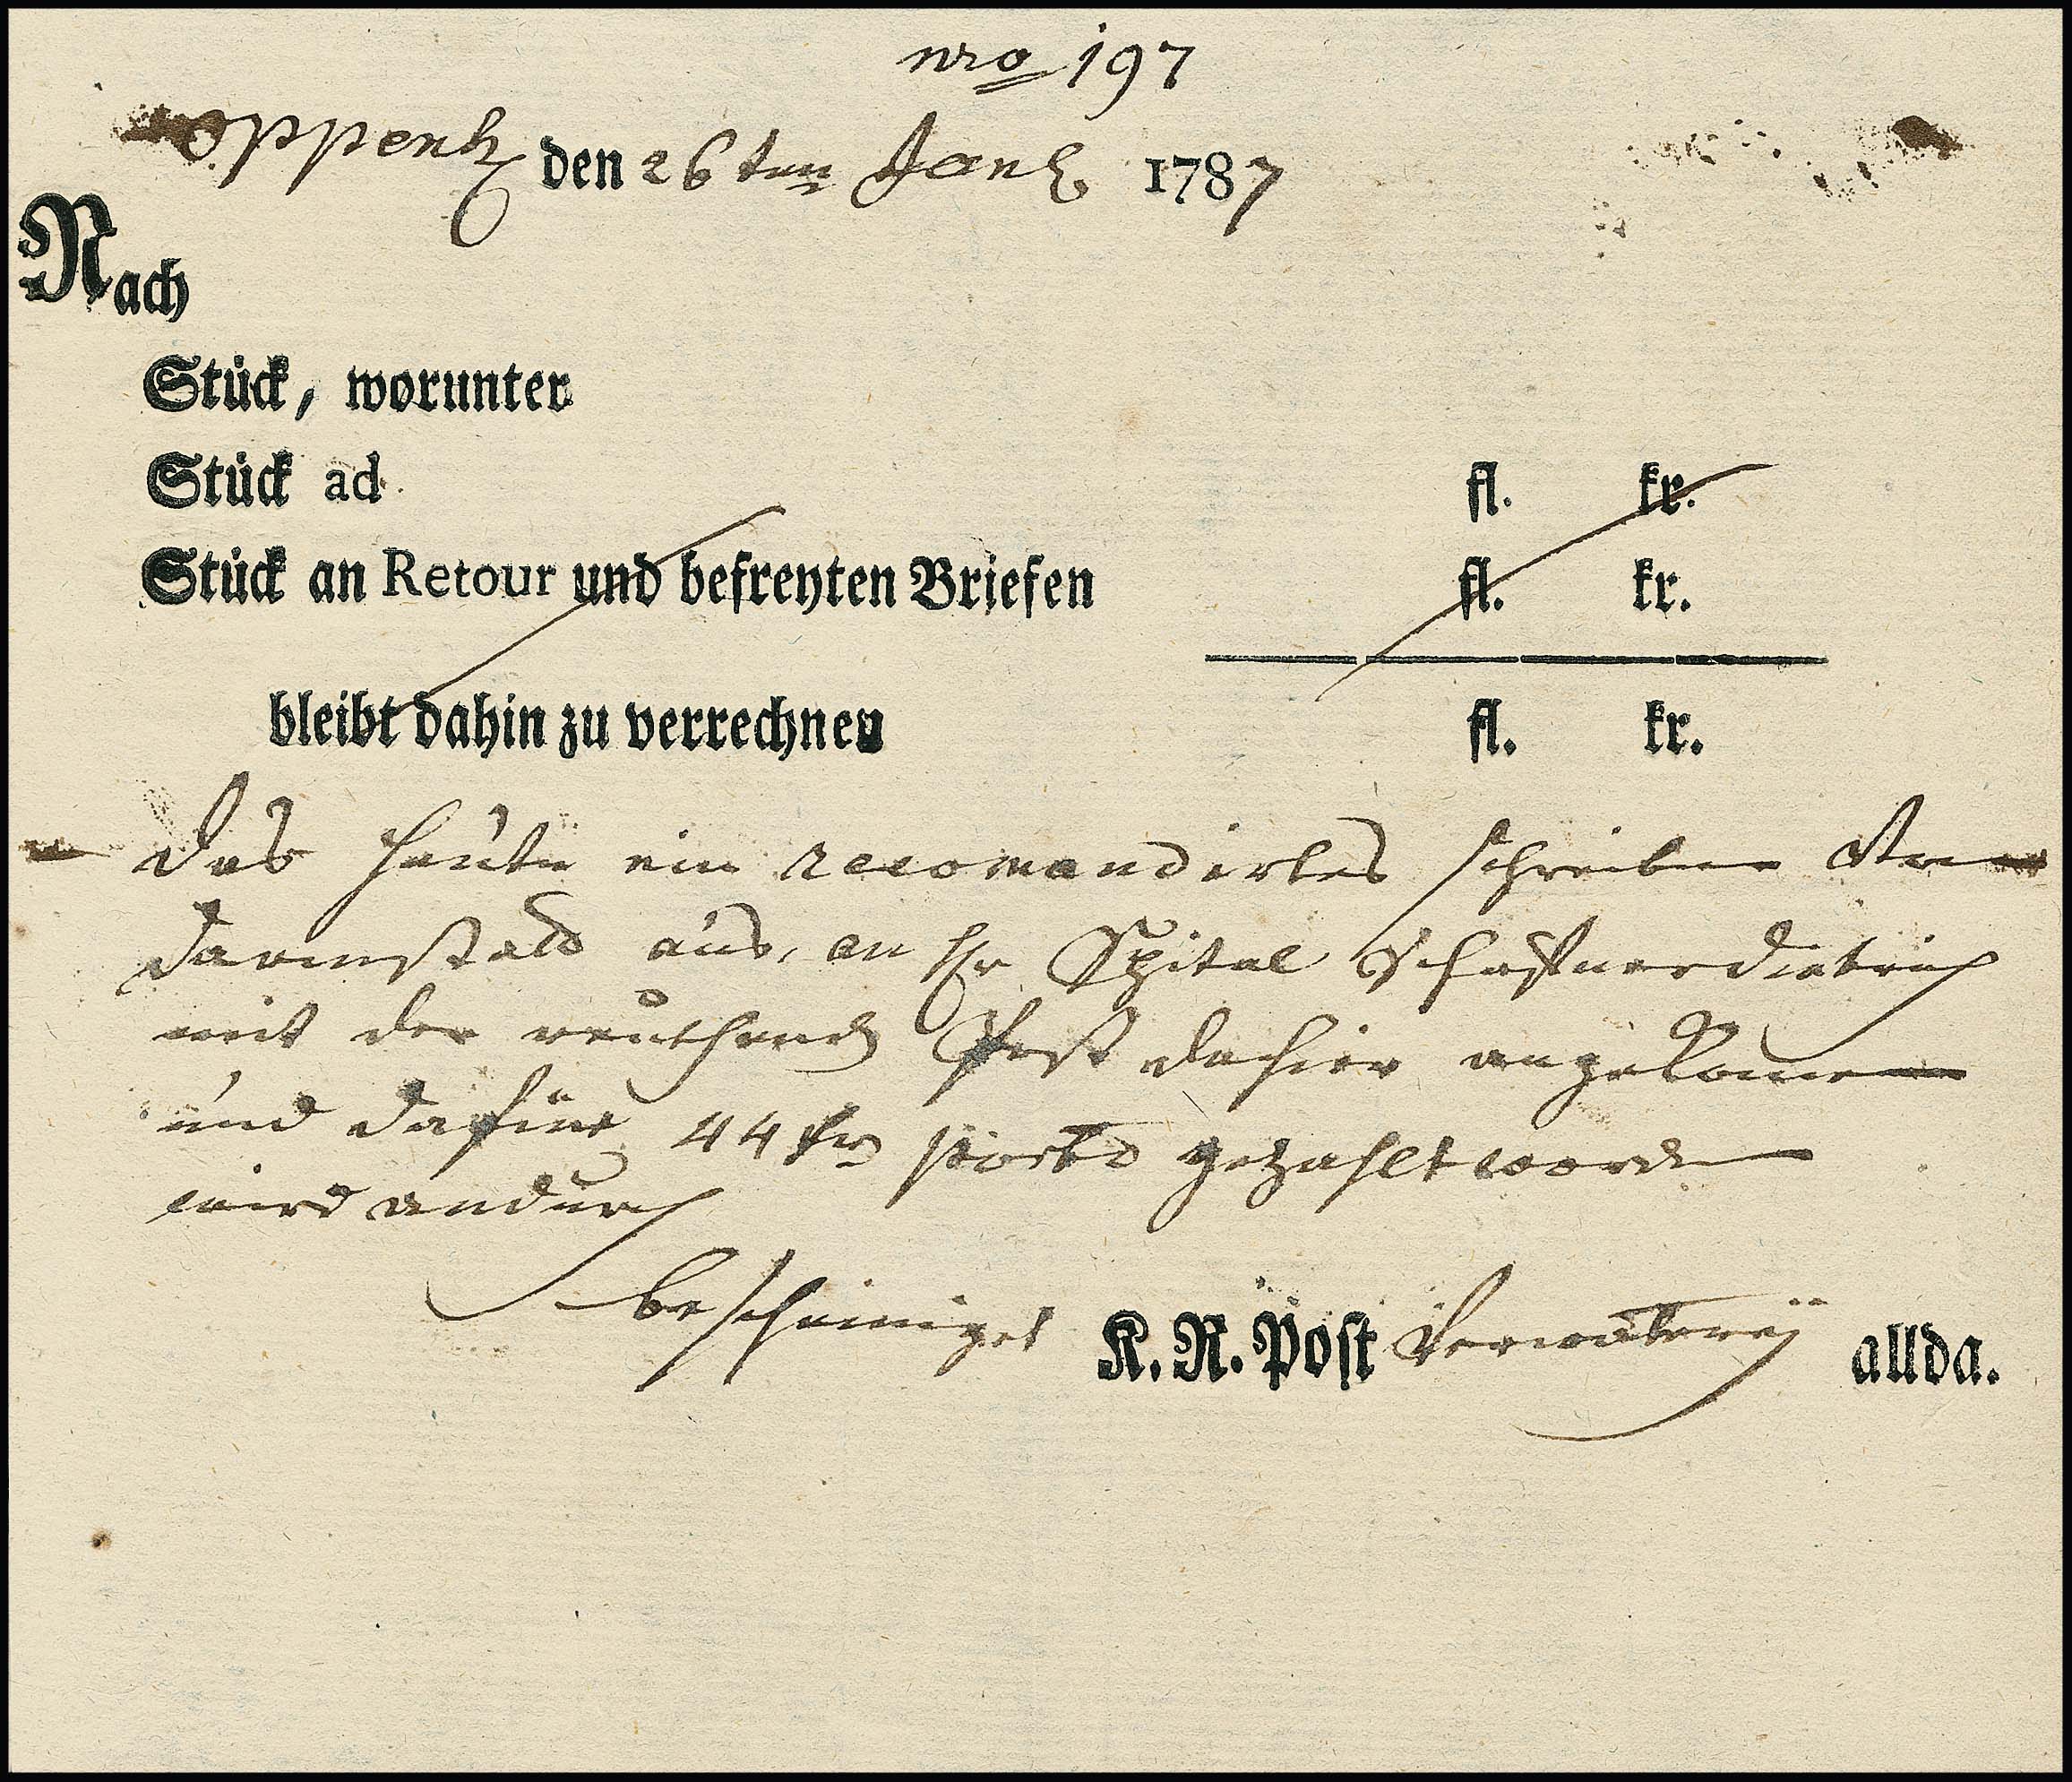 nro 197
Oppenh den 26ten Jan 1787
Nach
Stück, worunter
Stück ad fl. kr.
Stück an Retour und befreyten Briefen fl. kr.
bleibt dahin zu verrechnen fl. kr.
Das heute ein recomandirtes schreiben Von
Darmstatt aus, an Hr Spital Schaffner Dietrich
mit der reuthend Post dahier angekomen
und dafür 44 kr porto gezahlt worden
wird andurch
bescheiniget K. R. Post Verwalterey allda.